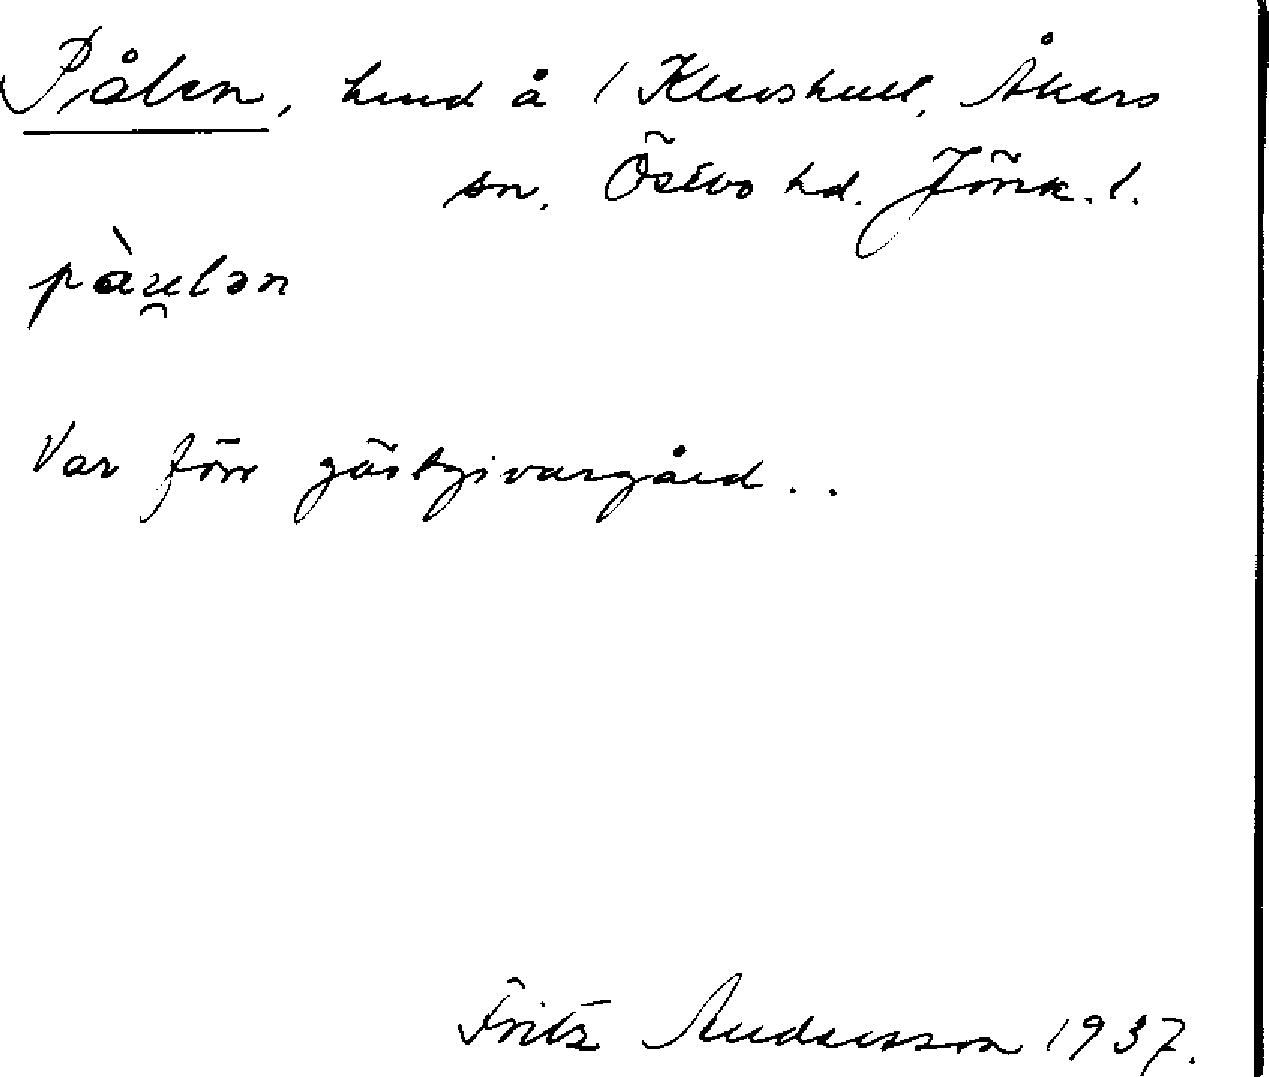 Pålen, lund å 1 Klavshult, Åkers
sn. Östbo hd. Jönk. l.
pàu̯lən
Var förr gästgivargård..
Fritz Andersson 1937.